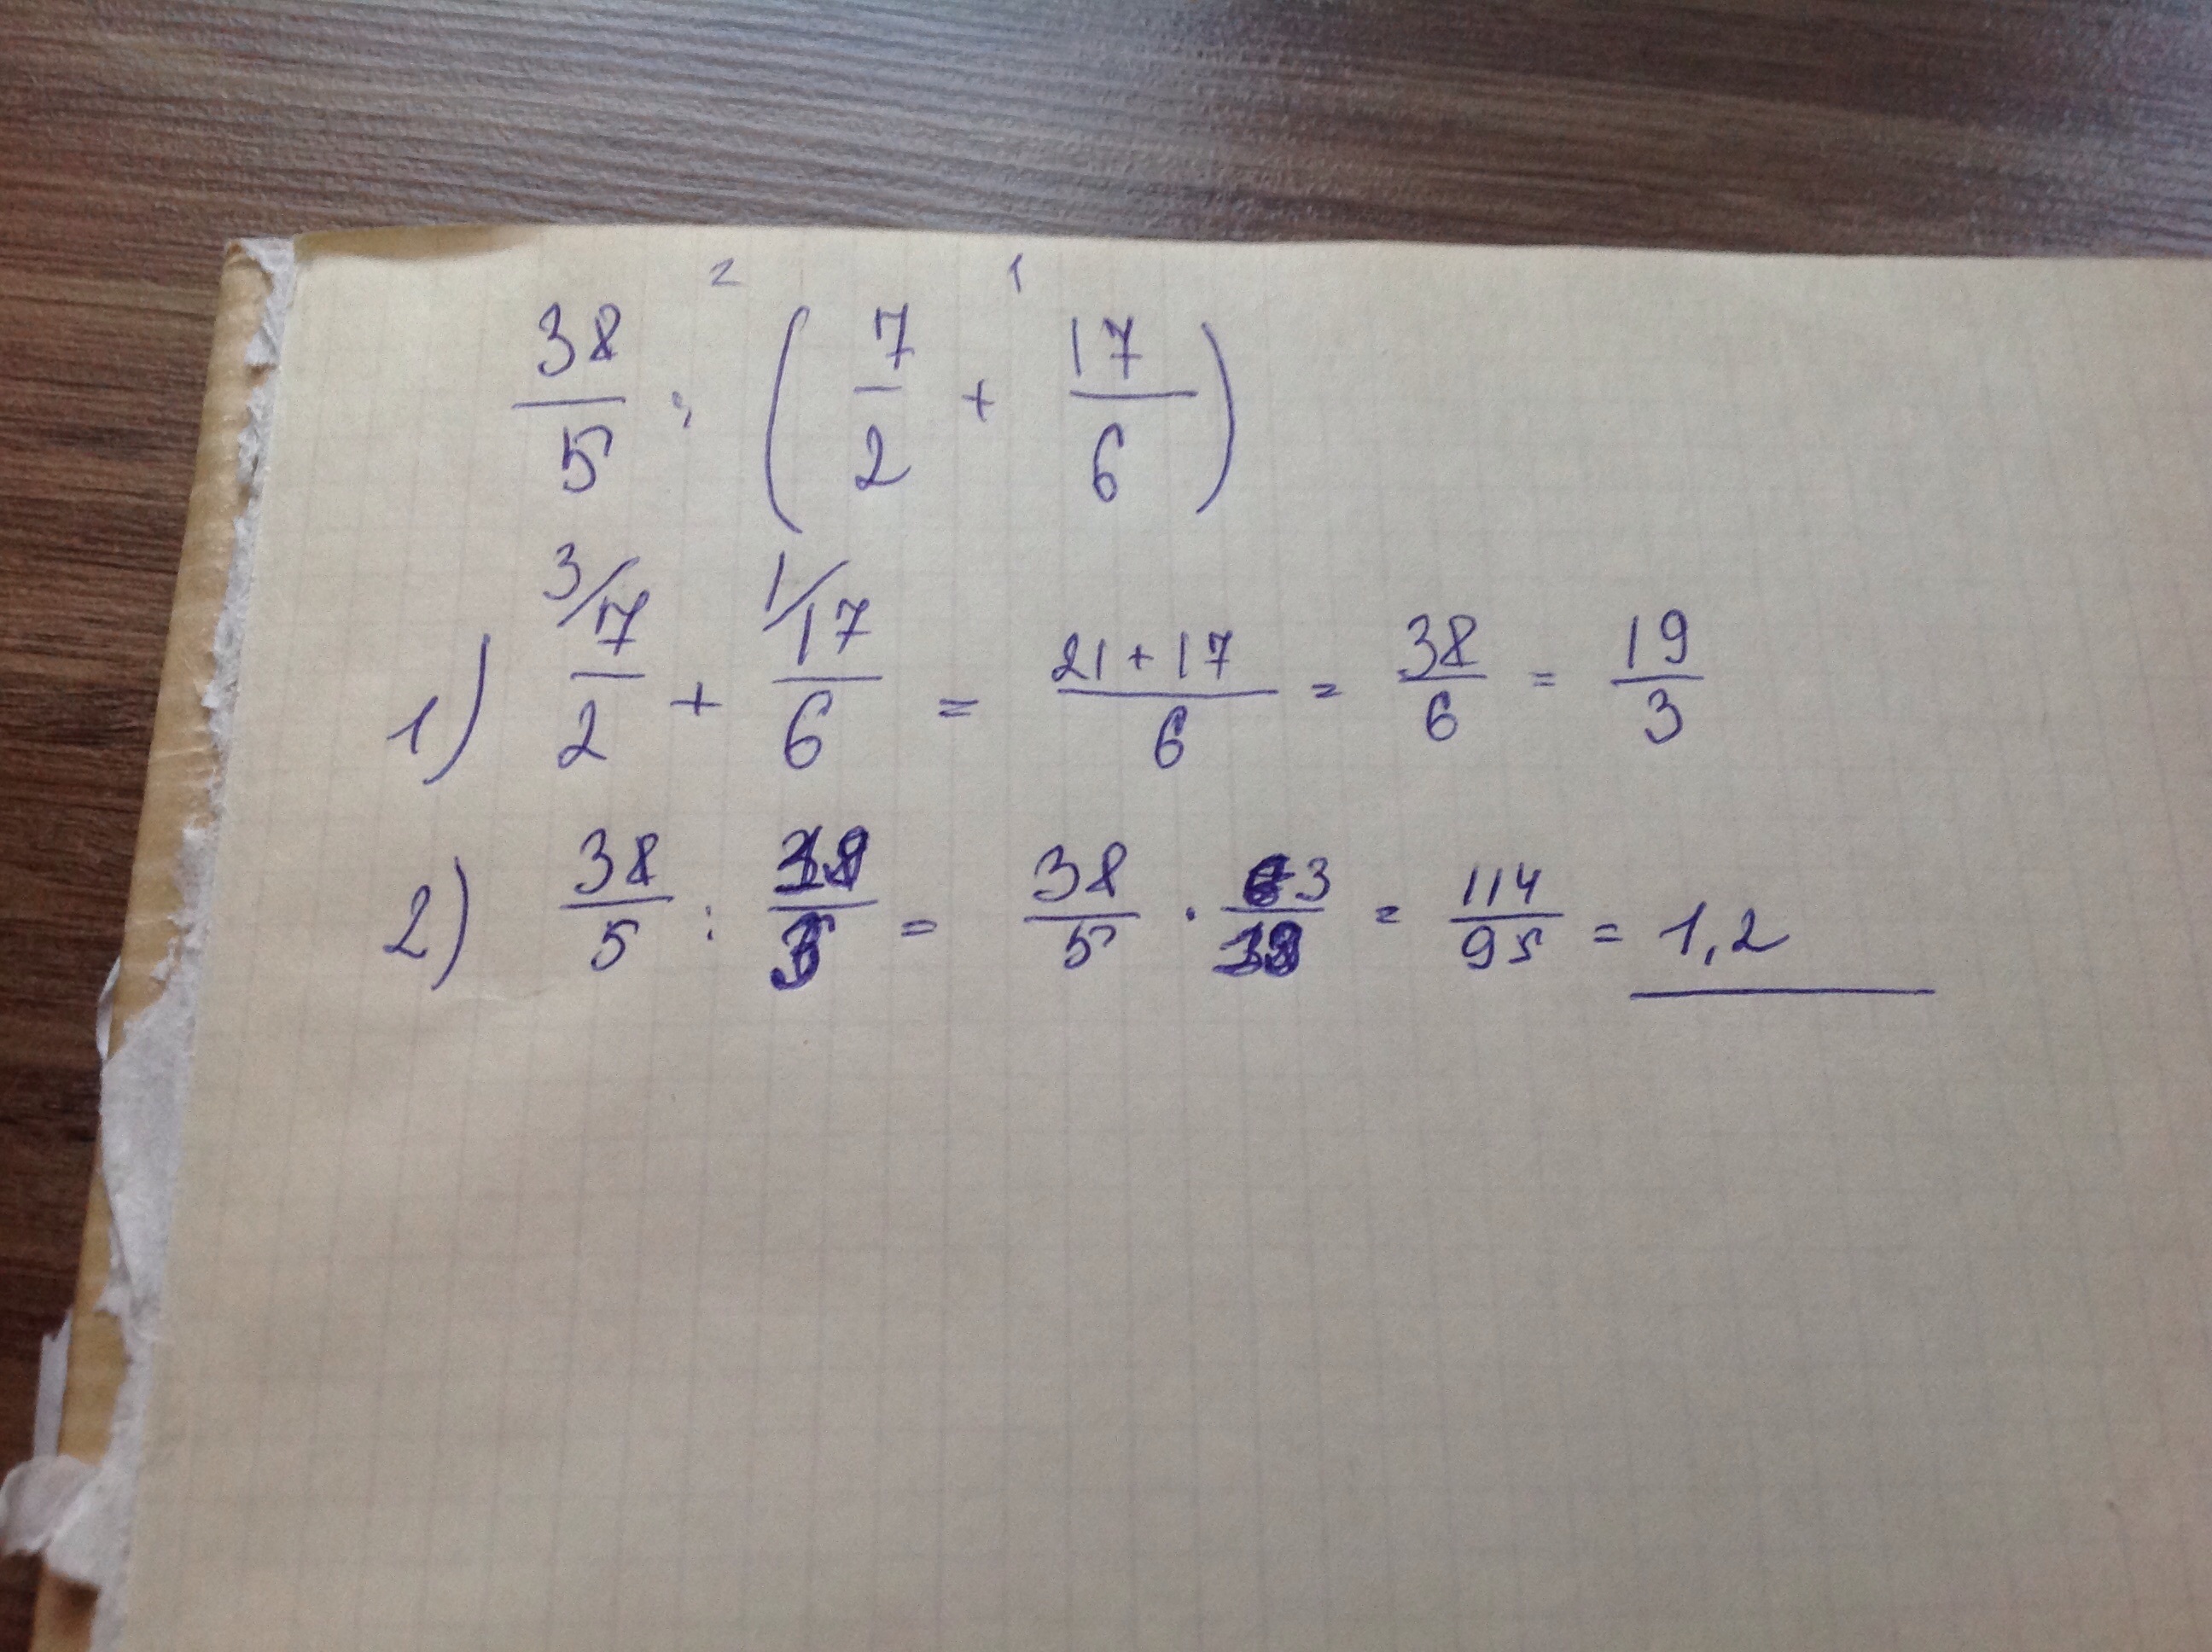 2 1
38/5 : (7/2 + 17/6)
1) 3/ 7/2 + 1/ 17/6 = 21+17/6 = 38/6 = 19/3
2) 38/5 : 19/3 = 38/5 · 3/19 = 114/95 = 1,2